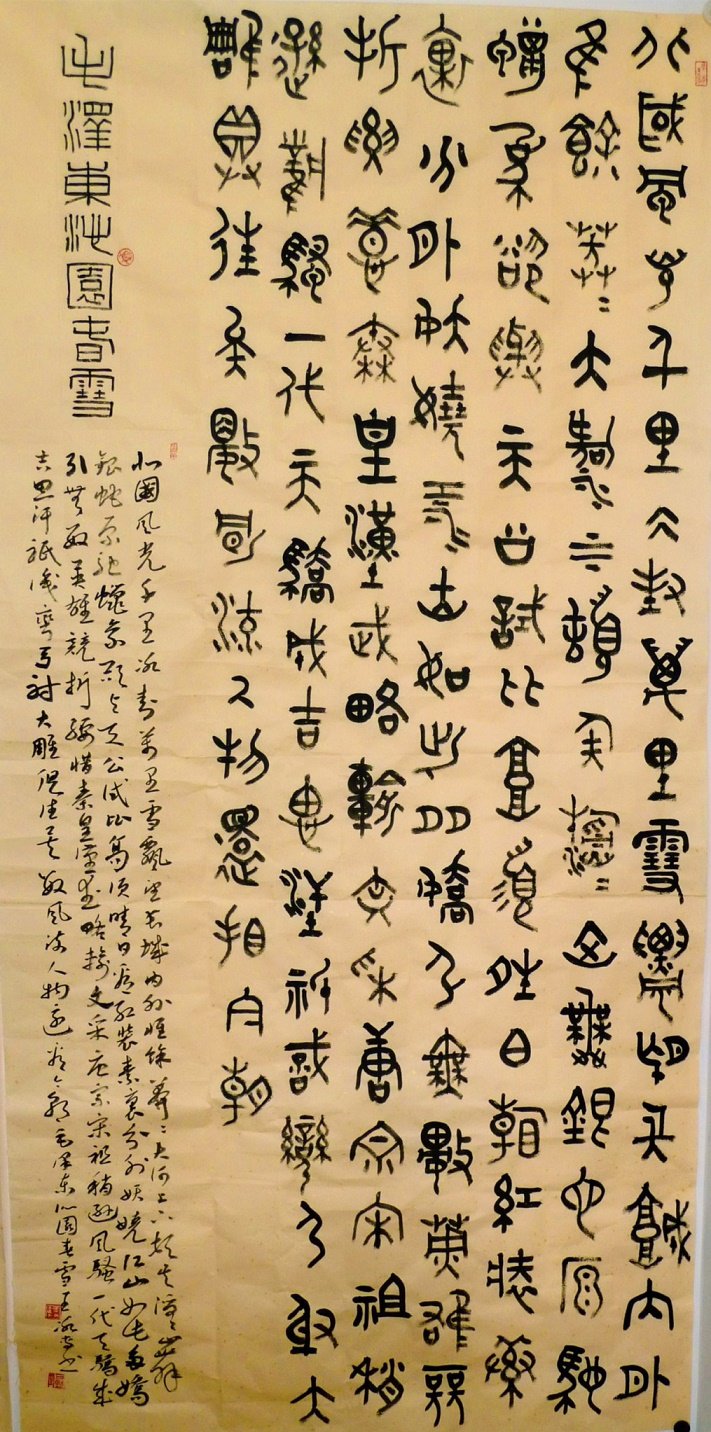 北國風光千里冰封萬里雪飄望長城内外
惟餘莽〻大河上下頓失滔〻山舞銀蛇原馳
蠟象欲與天公試比高須晴日看紅裝素
裹分外妖嬈江山如此多嬌引無數英雄競
折腰惜秦皇漢武略輸文采唐宗宋祖稍
遜風騷一代天驕成吉思汗祇識彎弓射大
雕俱往矣數風流人物還看今朝
毛澤東沁園春雪
北國風光千里冰封萬里雪飄望長城内外惟餘莽〻大河上下頓失滔〻山舞
銀蛇原馳蠟象欲與天公試比高須晴日看紅裝素裹分外妖嬈江山如此多嬌
引無數英雄競折腰惜秦皇漢武略輸文采唐宗宋祖稍遜風騷一代天驕成
吉思汗祇識彎弓射大雕俱往矣數風流人物還看今朝毛澤東沁園春雪王书